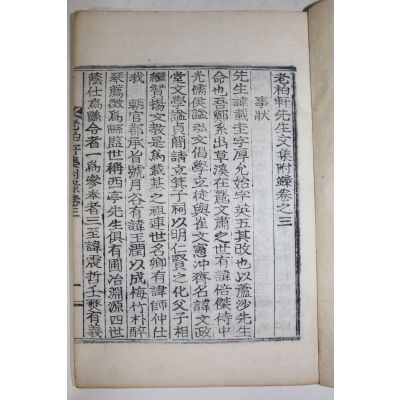 老柏軒先生文集附錄卷之三
事狀
先生諱載圭字厚允始字英五其改也以蘆沙先生
命也吾鄭系出草溪在麗文肅之世有諱倍傑侍中
光儒侯謚弘文倡學立徒與崔文憲冲齊名諱文政
堂文學謚貞簡請立箕子祠以明仁賢之化父子相
繼贊揚文敎是爲載基之祖連世名卿有諱師仲仕
我 朝官都承旨號月谷有諱玉潤以成梅竹朴醉
琴薦徵爲縣監世稱西亭先生俱有圃冶淵源四世
蔭仕爲縣令者一爲參奉者三至諱震哲壬燹有義
老柏軒集附錄卷三 一